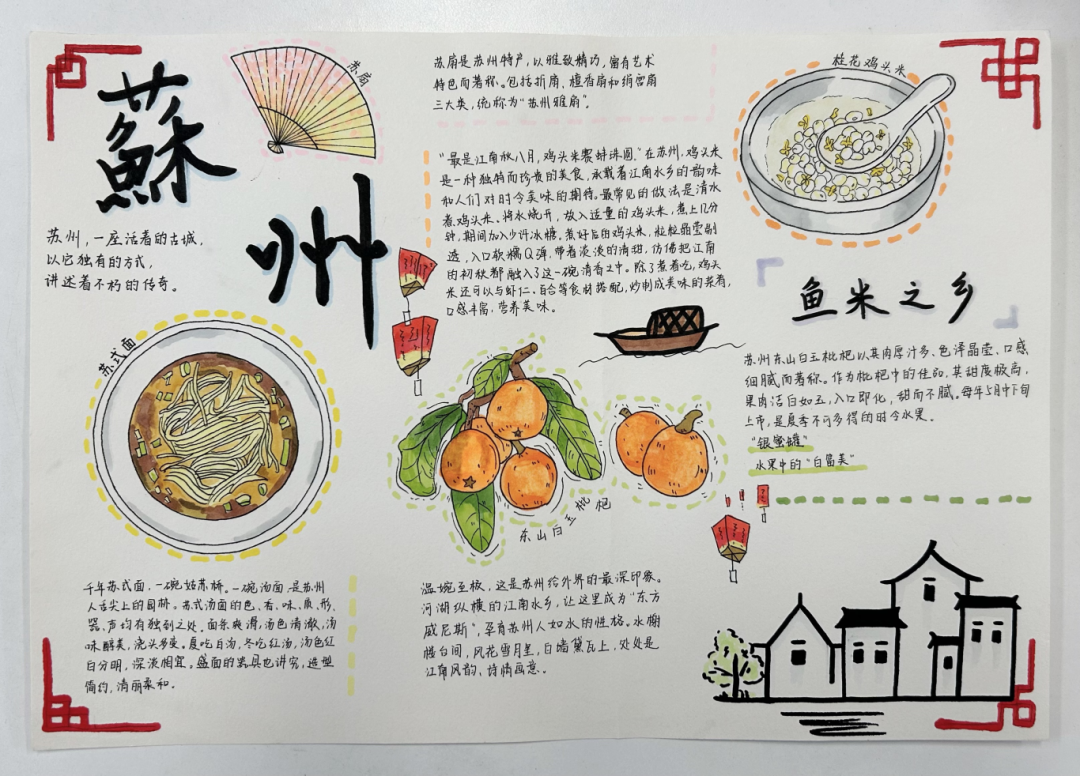 蘇
州
苏州，一座活着的古城，
以它独有的方式，
讲述着不朽的传奇。
苏扇
苏扇是苏州特产，以雅致精巧，富有艺术
特色而著称。包括折扇，檀香扇和绢宫扇
三大类，统称为“苏州雅扇”。
“最是江南秋八月，鸡头米赛蚌珠圆。”在苏州，鸡头米
是一种独特而珍贵的美食，承载着江南水乡的韵味
和人们对时令美味的期待。最常见的做法是清水
煮鸡头米。将水烧开，放入适量的鸡头米，煮上几分
钟，期间加入少许冰糖。煮好后的鸡头米，粒粒晶莹剔
透，入口软糯Q弹，带着淡淡的清甜，仿佛把江南
的初秋都融入了这一碗清香之中。除了煮着吃，鸡头
米还可以与虾仁、百合等食材搭配，炒制成美味的菜肴，
口感丰富，营养美味。
桂花鸡头米
鱼米之乡
苏州东山白玉枇杷以其肉厚汁多、色泽晶莹、口感
细腻而著称。作为枇杷中的佳品，其甜度极高，
果肉洁白如玉，入口即化，甜而不腻。每年5月中下旬
上市，是夏季不可多得的时令水果。
“银蜜罐”
水果中的“白富美”
苏式面
千年苏式面，一碗姑苏桥。一碗汤面是苏州
人舌尖上的园林。苏式汤面的色、香、味、质、形、
器、声均有独到之处。面条爽滑，汤色清澈，汤
味醇美，浇头多变。夏吃白汤，冬吃红汤，汤色红
白分明，深淡相宜。盛面的器具也讲究，造型
简约，清丽柔和。
东山白玉枇杷
温婉至极，这是苏州给外界的最深印象。
河湖纵横的江南水乡，让这里成为“东方
威尼斯”，孕育苏州人如水的性格。水榭
楼台间，风花雪月里，白墙黛瓦上，处处是
江南风韵，诗情画意。